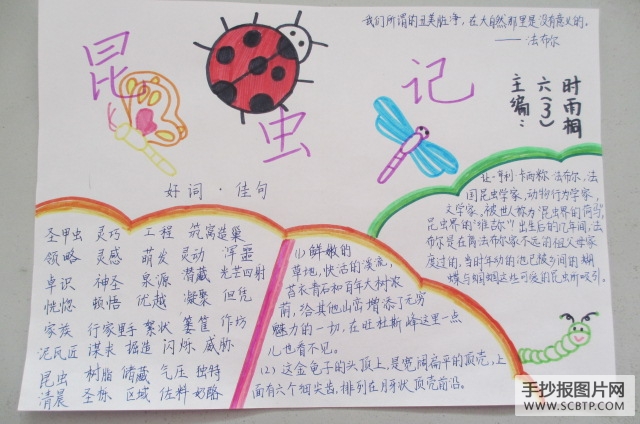 我们所谓的丑美脏净，在大自然那里是没有意义的。
—— 法布尔
昆虫记
时雨桐
六（3）
主编：
好词·佳句
圣甲虫 灵巧 工程 筑窝造巢
领略 灵感 萌发 灵动 浑噩
卓识 神圣 泉源 潜藏 光芒四射
恍惚 顿悟 优越 凝聚 但凭
家族 行家里手 絮状 篓筐 作坊
泥瓦匠 谋求 掘造 闪烁 威胁
昆虫 树脂 储藏 气压 独特
清晨 圣栎 区域 佐料 奶酪
（1）鲜嫩的
草地，快活的溪流，
苔衣青石和百年大树浓
荫，给其他山峦增添了无穷
魅力的一切，在旺杜斯峰这里一点
儿也看不见。
（2）这金龟子的头顶上，是宽阔扁平的顶壳，上
面有六个细尖齿，排列在月牙状顶壳前沿。
让-亨利·卡西米尔·法布尔，法
国昆虫学家，动物行为学家，
文学家，被世人称为“昆虫界的荷马”，
昆虫界的“维吉尔”！出生后的几年间，法
布尔是在离法布尔家不远的祖父母家
度过的，当时年幼的他已被乡间的蝴
蝶与蝈蝈这些可爱的昆虫所吸引。
手抄报图片网
WWW.SCBTP.COM